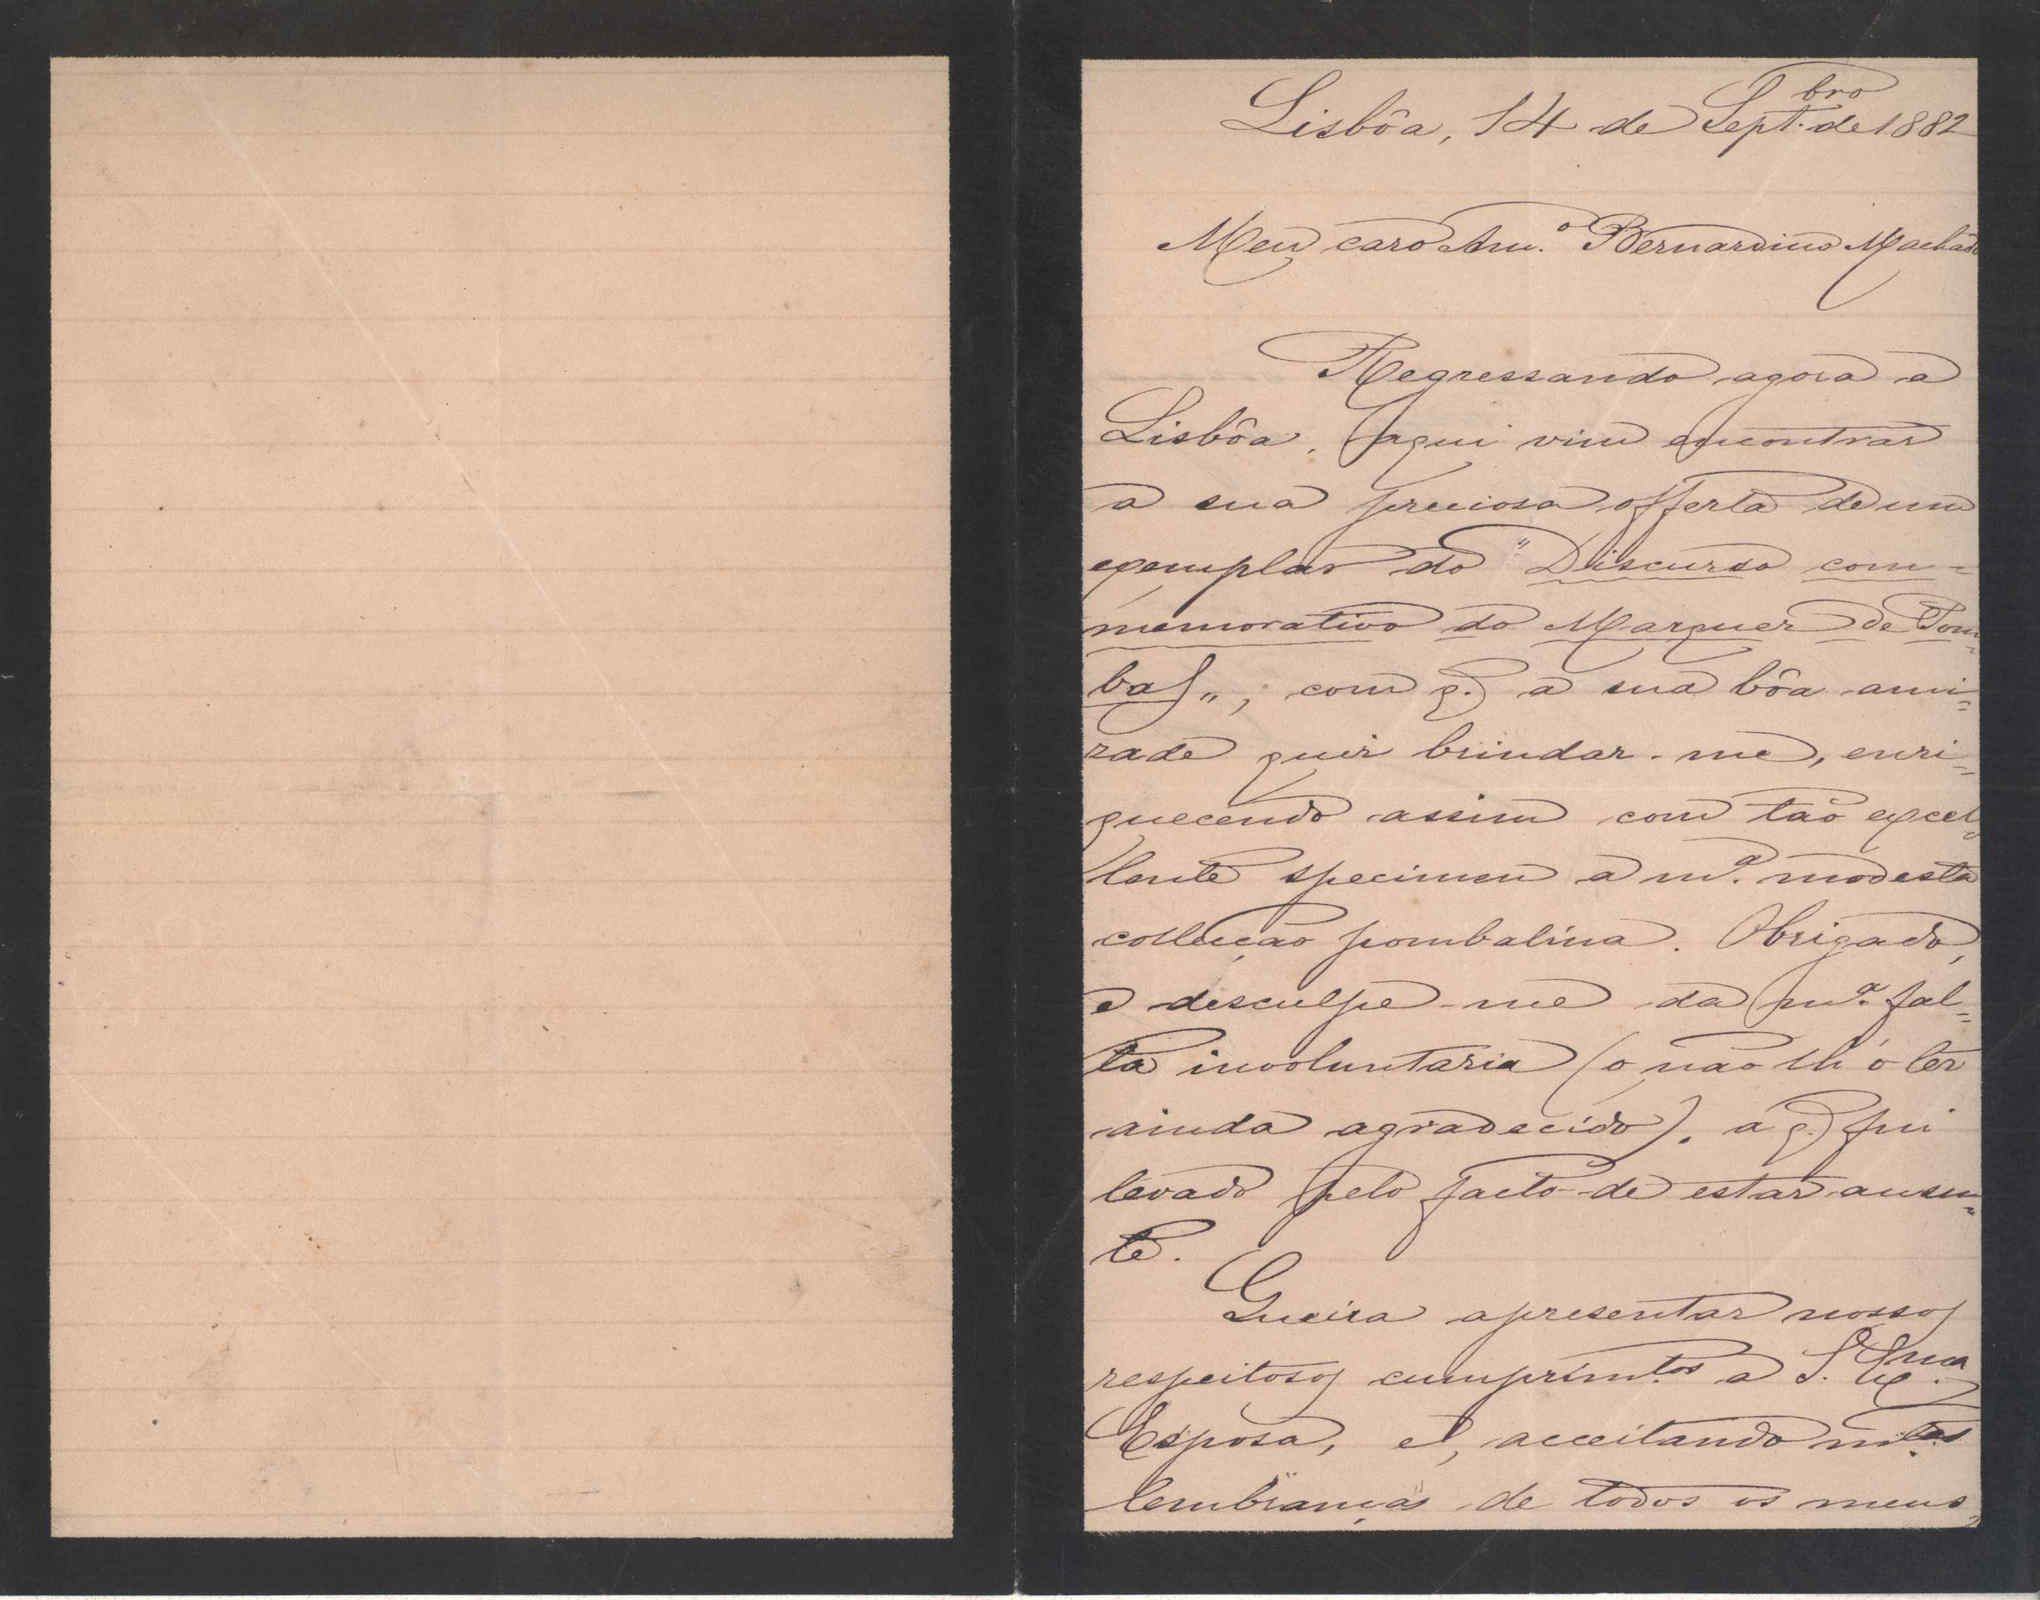 Lisbôa, 14 de Sept.bro de 1882
Meu caro Am.o Bernardino Machado
Regressando agora a
Lisbôa, aqui vim encontrar
a sua preciosa offerta de um
exemplar do "Discurso com-
memorativo do Marquez de Pom-
bal", com q. a sua bôa ami-
zade quiz brindar-me, enri-
quecendo assim com tão excel-
lente specimen a m.a modesta
collecção pombalina. Obrigado,
e desculpe-me da m.a fal-
ta involuntaria (o não lh'o ter
ainda agradecido), a q. fui
levado pelo facto de estar ausen-
te.
Queira apresentar nossos
respeitosos cumprim.tos a S. Ex.ma
Esposa, e, acceitando m.tas
lembranças de todos os meus,